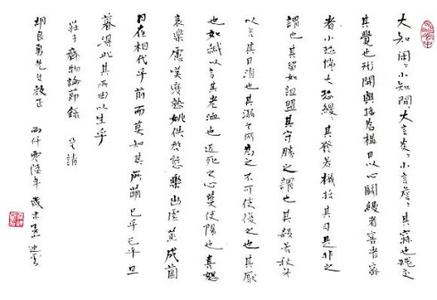 大知閑々小知間々大言炎々小言詹々其寐也魂交
其覺也形開與接為構日以心鬪縵者窖者密
者小恐惴々大恐縵々其發若機栝其司是非之
謂也其留如詛盟其守勝之謂也其殺若秋冬
以言其日消也其溺之所為之不可使復之也其厭
也如緘以言其老洫也近死之心莫使復陽也喜怒
哀樂慮嘆變慹姚佚啟態樂出虛蒸成菌
日夜相代乎前而莫知其所萌已乎已乎旦
暮得此其所由以生乎
莊子齊物論節錄 呈請
胡良勇先生教正
両仟零陸年歲末